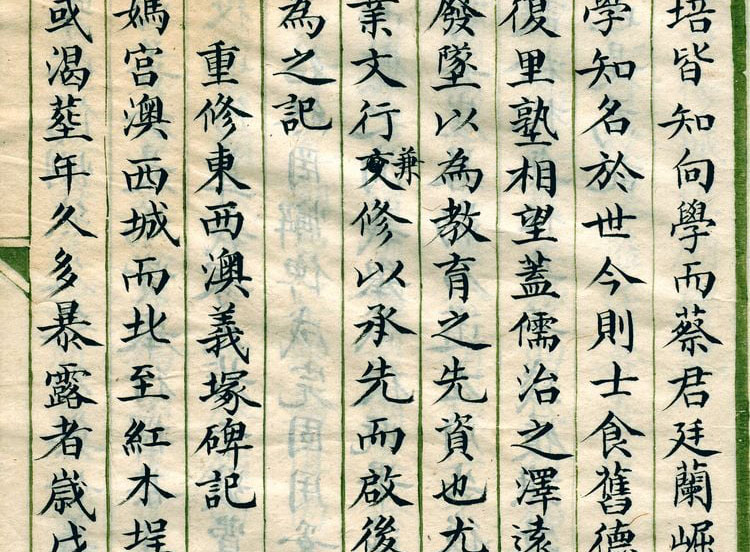 培皆知向學而蔡君廷蘭崛
學知名於世今則士食舊德
復里塾相望蓋儒治之澤遠
廢墜以為教育之先資也尤
業文行兼修以承先而啟後
為之記
重修東西澳義塚碑記
媽宮澳西城而北至紅木埕
或渴塟年久多暴露者歲戊